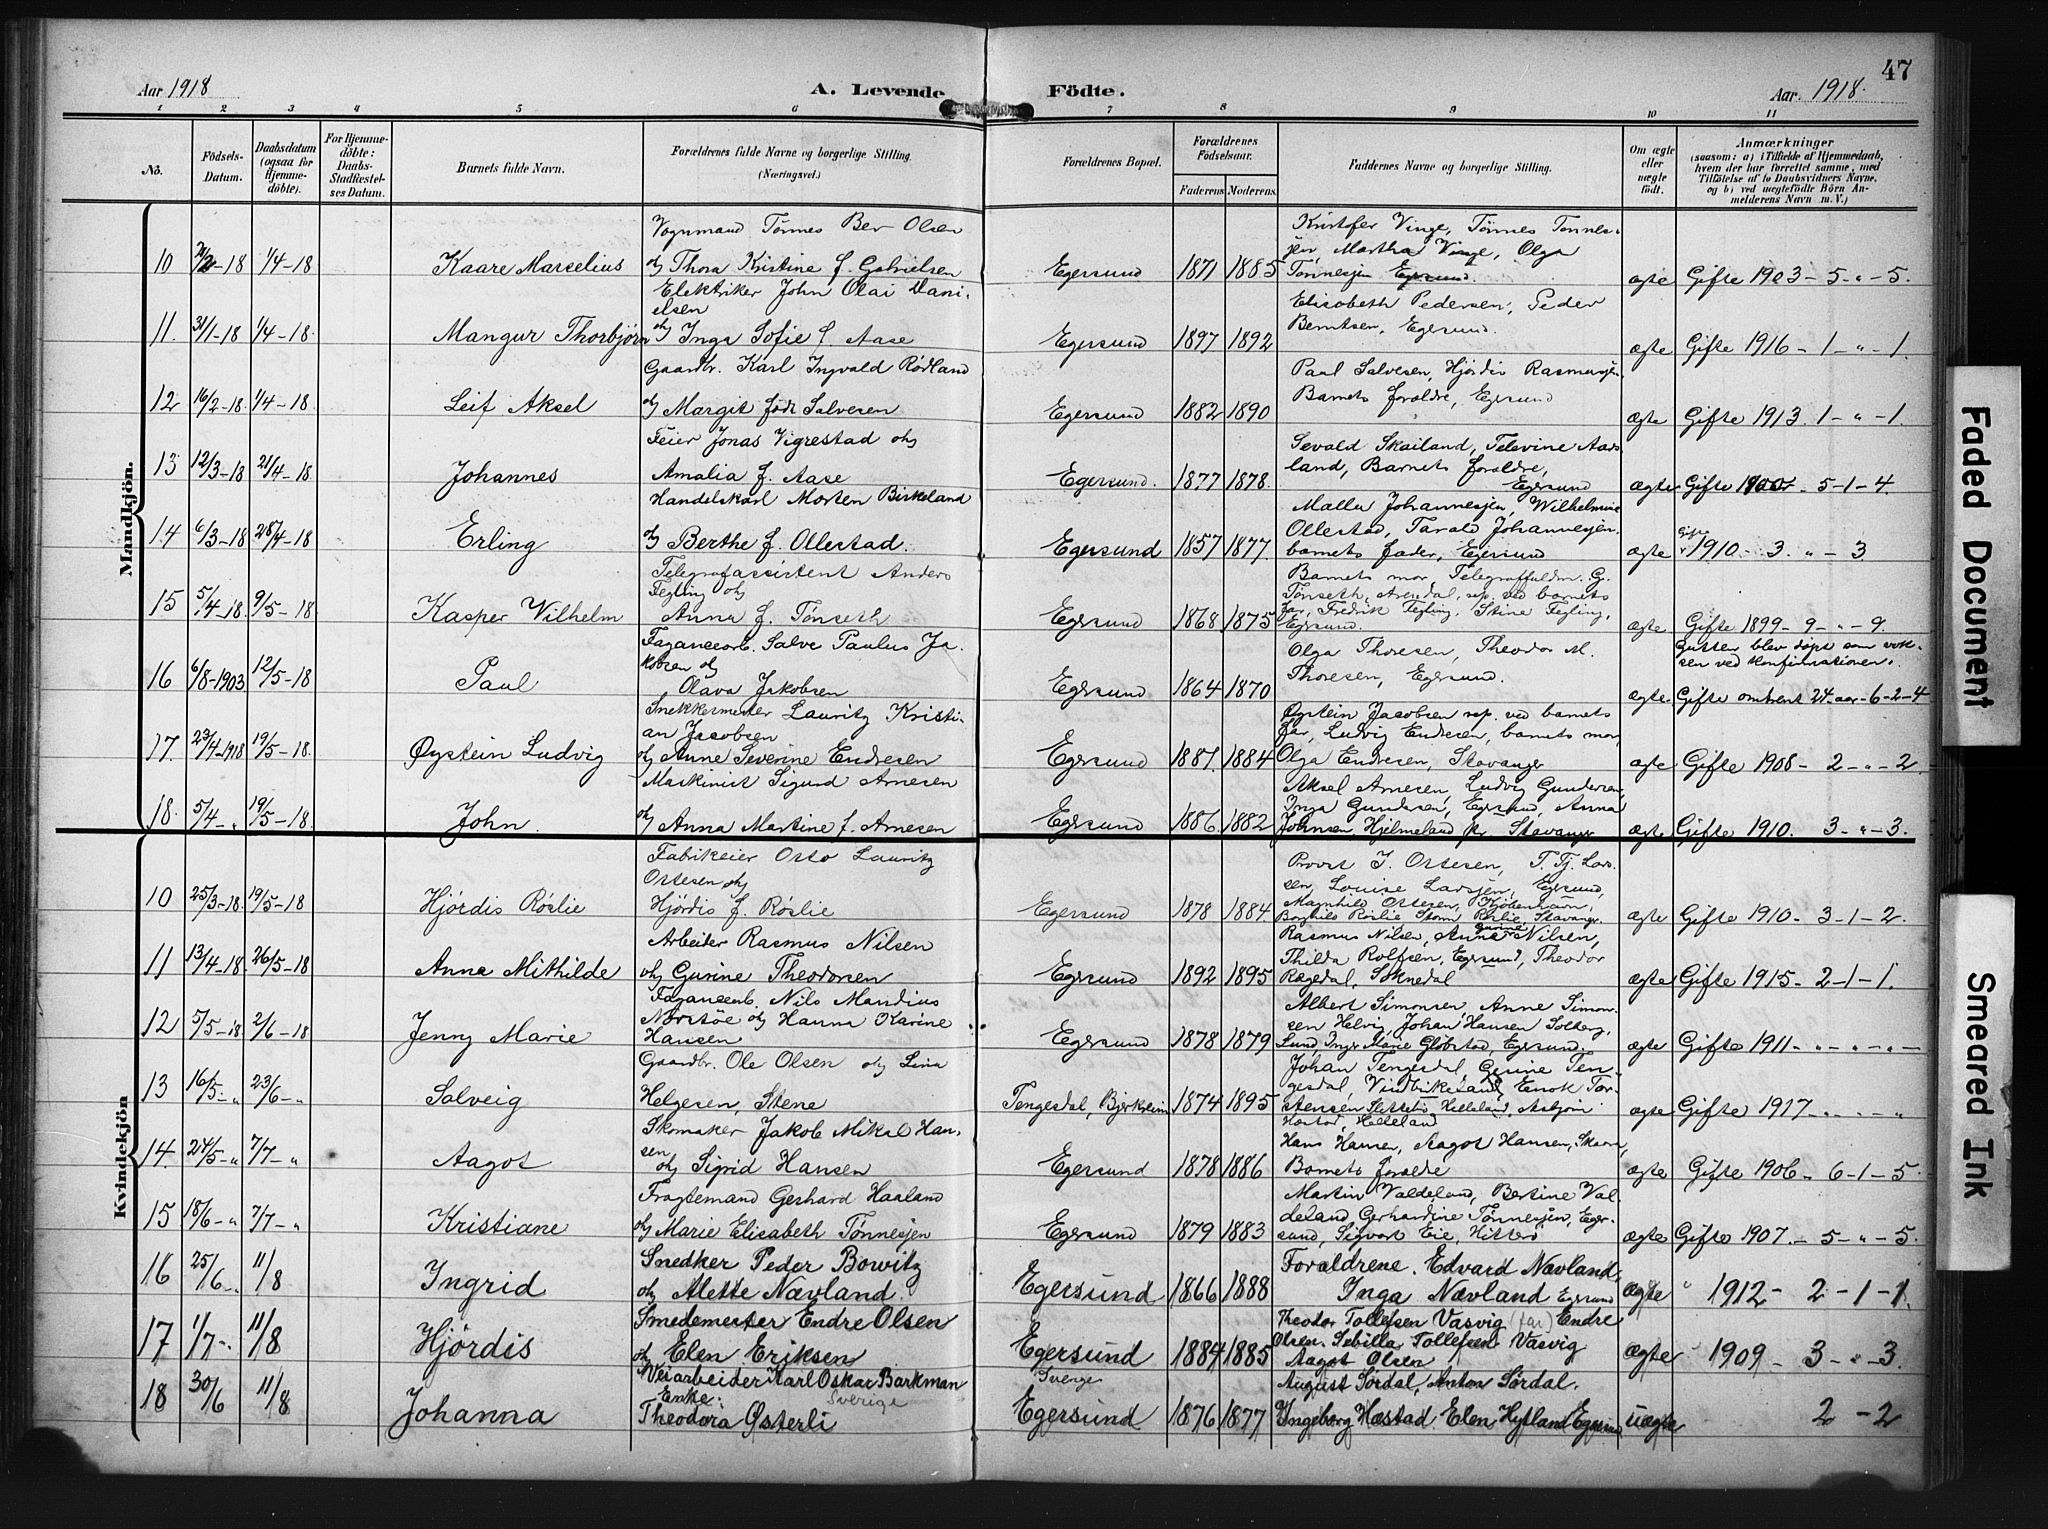 47
Aar 1918
A. Levende
Födte.
Aar. 1918.
1 2 3 4 5 6 7 8 9 10 11
No.
Födsels-Datum.
Daabsdatum (ogsaa for Hjemmedöbte).
For Hjemmedöbte: Daabs-Stadfæstelses Datum.
Barnets fulde Navn.
Forældrenes fulde Navne og borgerlige Stilling. (Næringsvei.)
Forældrenes Bopæl.
Forældrenes Födselsaar.
Faderens. Moderens.
Faddernes Navne og borgerlige Stilling.
Om ægte eller uægte födt.
Anmærkninger (saasom: a) i Tilfælde af Hjemmedaab, hvem der har forrettet samme, med Tilföielse af to Daabsvidners Navne, og b) ved uægtefödte Börn Anmelderens Navn m. V.)
Mandkjön.
10 1/4-18 Kaare Marselius Vognmand Tönnes Ber Olsen og Thora Kristine f. Gabrielsen Egersund 1871 1885 Kristofer Vinge, Tönnes Tönnesjen, Martha Vinge, Olga Tönnesjen Egersund. ægte Gifte 1903 - 5 - " - 5.
11. 31/1-18 1/4-18 Mangur Thorbjørn Elektriker John Olai Danielsen og Inga Sofie f. Aase Egersund 1897 1892 Elisabeth Pedersen, Peder Berntsen, Egersund. ægte Gifte 1916 - 1 - " - 1.
12 16/2-18. 1/4-18. Leif Aksel Gaardbr. Karl Ingvald Rødland og Margit født Salvesen Egersund 1882 1890 Paul Salvesen, Hjördis Rasmusjen, Barnets foraldre, Egersund ægte Gifte 1913. 1 - " - 1.
13 12/3-18 21/4-18 Johannes Feier Jonas Vigrestad og Amalia f. Aase Egersund. 1877 1878. Sevald Skailand, Televine Aarsland, Barnets foraldre, Egersund ægte Gifte - 5-1-4.
14 6/3-18 28/4-18 Erling Handelskarl Morten Birkeland og Berthe f. Ollestad. Egersund 1857 1877. Malla Johannesjen, Wilhelmine Ollestad, Tarald Johannesjen, barnets fader, Egersund ægte Gifte 1910 - 3. " - 3
15 5/4-18. 9/5-18 Kasper Wilhelm Telegrafassistent Anders Fegling og Anna f. Tönseth Egersund 1868 1875 Barnets mor, Telegraffuldm. G. Tönseth, Arendal, rep. ved barnets far, Fredrik Fegling, Stine Fegling, Egersund. ægte Gifte 1899 - 9 - " - 9.
16 6/8-1903 12/5-18 Paul Fajancearb. Salve Paulus Jakobsen og Olava Jakobsen Egersund 1864 1870 Olga Thoresen, Theodor M. Thoresen, Egersund. ægte Gutten blev døpt som voksen ved konfirmationen. Gifte omtrent 24 aar-6-2-4
17. 23/4-1918 19/5-18. Øystein Ludvig Snekkermester Lauritz Kristian Jacobsen og Anne Severine Endresen Egersund 1881. 1884 Øystein Jacobsen rep. ved barnets far, Ludvig Endresen, barnets mor, Olga Endresen, Stavanger ægte Gifte 1908 - 2 - " - 2.
18. 5/4-" 19/5-18. John. Maskinist Sigurd Arnesen og Anna Martine f. Arnesen Egersund 1886. 1882 Aksel Arnesen, Ludvig Gundersen, Inga Gundersen, Egersund, Anna Johnsen, Hjelmeland pr. Stavanger ægte Gifte 1910. 3 - " - 3.
Kvindekjön
10 25/3-18. 19/5-18 Hjørdis Røslie Fabrikeier Otto Lauritz Ottesen og Hjørdis f. Røslie Egersund 1878 1884. Provst J. Ottesen, T. Tj. Larsen, Louise Larsjen, Egersund, Magnhild Ottesen, Kjøbenhavn, Borghild Røslie, Røslie, Stavanger. ægte Gifte 1910 - 3-1-2.
11 13/4-18. 26/5-18 Anna Mithilde Arbeider Rasmus Nilsen og Gurine Theodorsen Egersund 1892 1895 Rasmus Nilsen, Anna Gurine Nilsen, Thilda Rolfsen, Egersund, Theodor Rægdal, Soknedal ægte Gifte 1915 - 2-1-1.
12 5/5-18 2/6-18 Jenny Marie Fajancearb. Nils Mandius Norstöe og Hanna Karine Hansen Egersund 1878 1879 Albert Simonsen, Anne Simonsen Helvig, Johan Hansen Solberg, Lund, Inger Marie Globstad, Egersund. ægte Gifte 1911 - " - " - " -
13 16/5-" 23/6-" Solveig Gaardbr. Ole Olsen og Lina Helgesen, Stene Tengesdal, Bjerkreim 1874 1895 Johan Tengesdal, Gurine Tengesdal, Vindbirkeland, Enok Torstensen Slettebö, Helleland, Asbjørn Høstad, Helleland ægte Gifte 1917 " " " "
14. 24/5-" 7/7-" Aagot Skomaker Jakob Mikal Hansen og Sigrid Hansen Egersund 1878 1886 Hans Hansen, Aagot Hansen, Skaara, Barnets foraldre ægte Gifte 1906 - 6-1-5.
15 18/6-" 7/7-" Kristiane Fragtemand Gerhard Haaland og Marie Elisabeth Tønnesjen Egersund 1879 1883 Martin Valdeland, Bertine Valdeland, Gerhardine Tønnesjen, Egersund, Sigvart Eie, Hitterö ægte Gifte 1907. - 5 - " - 5.
16 25/6-" 11/8 Ingrid Snedker Peder Bowitz og Alette Nævland. Egersund 1866 1888 Foraldrene. Edvard Nævland, Inga Nævland Egersund ægte " 1912 - 2-1-1.
17 1/7-. 11/8 Hjørdis Smedemester Endre Olsen og Elen Eriksen Egersund 1884 1885 Theodor Tollefsen Vasvig (far) Endre Olsen. Sebilla Tollefsen Vasvig Aagot Olsen ægte " 1909 - 3 - " - 3.
18 30/6 11/8 Johanna Veiarbeider Karl Oskar Barkman Enke: Sverige Theodora Østerli Sverige Egersund 1876 1877 August Sørdal, Anton Sørdal. Ingeborg Hæstad. Elen Hytland Egersund uægte 2 - 2
Faded Document
Smeared Ink